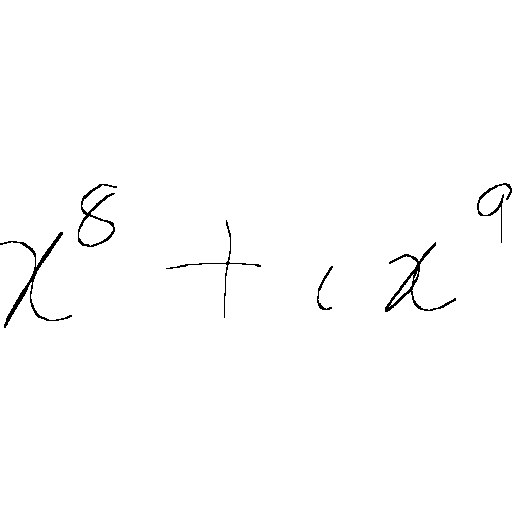 x^8 + ι x^9